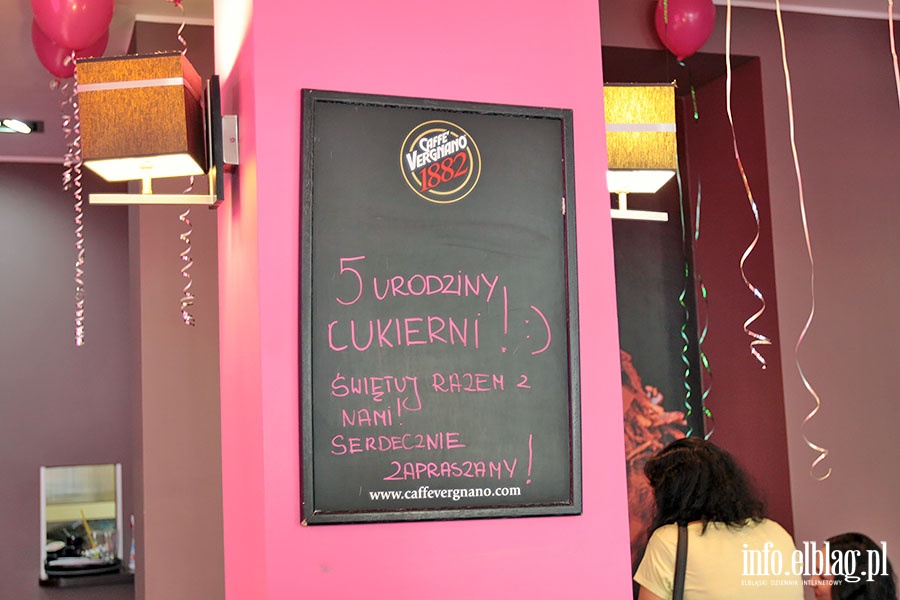 CAFFÈ
VERGNANO
1882
5 URODZINY
CUKIERNI! :)
ŚWIĘTUJ RAZEM Z
NAMI!
SERDECZNIE
ZAPRASZAMY!
www.caffevergnano.com
info.elblag.pl
ELBLĄSKI DZIENNIK INTERNETOWY